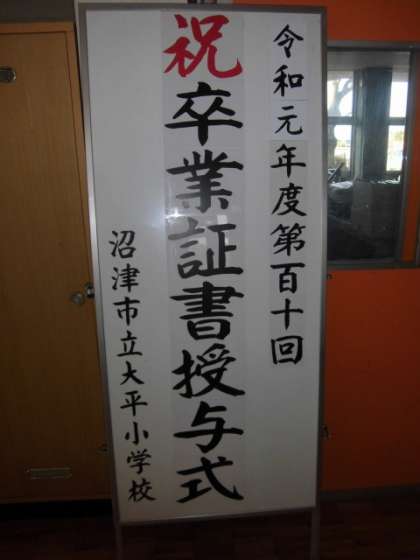 令和元年度第百十回
祝卒業証書授与式
沼津市立大平小学校